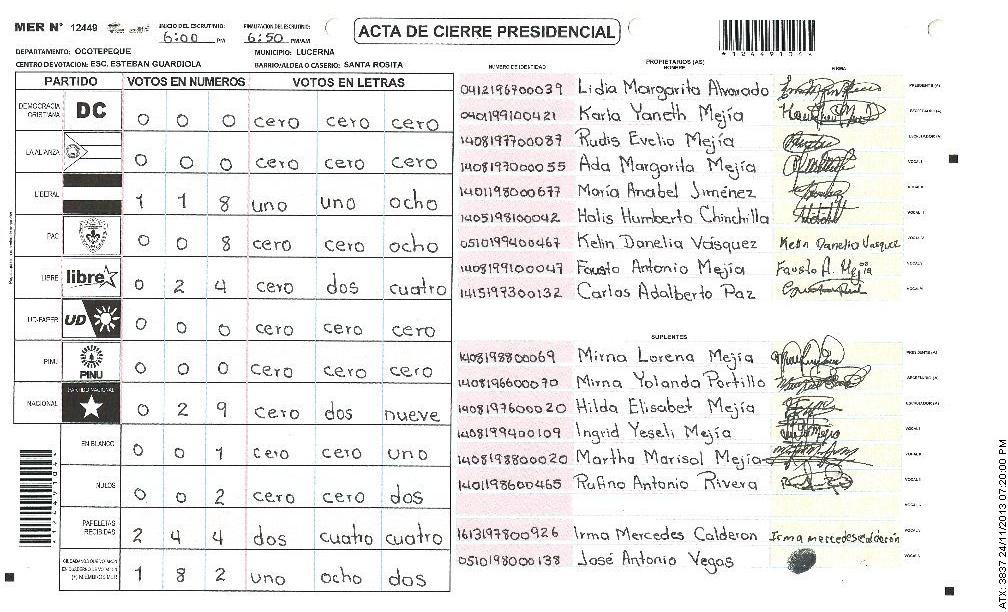 MER N° 12449
INICIO DEL ESCRUTINIO: 6:00 PM
FINALIZACION DEL ESCRUTINIO: 6:50 PM/AM
ACTA DE CIERRE PRESIDENCIAL
DEPARTAMENTO: OCOTEPEQUE
MUNICIPIO: LUCERNA
CENTRO DE VOTACION: ESC. ESTEBAN GUARDIOLA
BARRIO/ALDEA O CASERIO: SANTA ROSITA
PARTIDO VOTOS EN NUMEROS VOTOS EN LETRAS
DEMOCRACIA CRISTIANA DC 0 0 0 cero cero cero
LA ALIANZA 0 0 0 cero cero cero
LIBERAL 1 1 8 uno uno ocho
PAC 0 0 8 cero cero ocho
LIBRE libre 0 2 4 cero dos cuatro
UD-FAPER UD 0 0 0 cero cero cero
PINU PINU 0 0 0 cero cero cero
NACIONAL PARTIDO NACIONAL 0 2 9 cero dos nueve
EN BLANCO 0 0 1 cero cero uno
NULOS 0 0 2 cero cero dos
PAPELETAS RECIBIDAS 2 4 4 dos cuatro cuatro
1 8 2 uno ocho dos
NUMERO DE IDENTIDAD PROPIETARIOS (AS) NOMBRE FIRMA
0412196700039 Lidia Margarita Alvarado PRESIDENTE (A)
0401199100421 Karla Yaneth Mejía SECRETARIO (A)
1408197700087 Rudis Evelio Mejía ESCRUTADOR (A)
1408197000055 Ada Margarita Mejía VOCAL I
1401198000677 María Anabel Jiménez VOCAL II
1405198100042 Halis Humberto Chinchilla VOCAL III
0510199400467 Kelin Danelia Vásquez Kelin Danelia Vasquez
1408199100047 Fausto Antonio Mejía Fausto A. Mejía
1415197300132 Carlos Adalberto Paz
SUPLENTES
1408198800069 Mirna Lorena Mejía PRESIDENTE (A)
1408196600070 Mirna Yolanda Portillo SECRETARIO (A)
1408197600020 Hilda Elisabet Mejía ESCRUTADOR (A)
1408199400109 Ingrid Yeseli Mejía VOCAL I
1408198800020 Martha Marisol Mejía VOCAL II
1401198600465 Rufino Antonio Rivera
1613197800926 Irma Mercedes Calderon Irma mercedes calderon
0510198000138 José Antonio Vegas
ATX: 3837 24/11/2013 07:20:00 PM